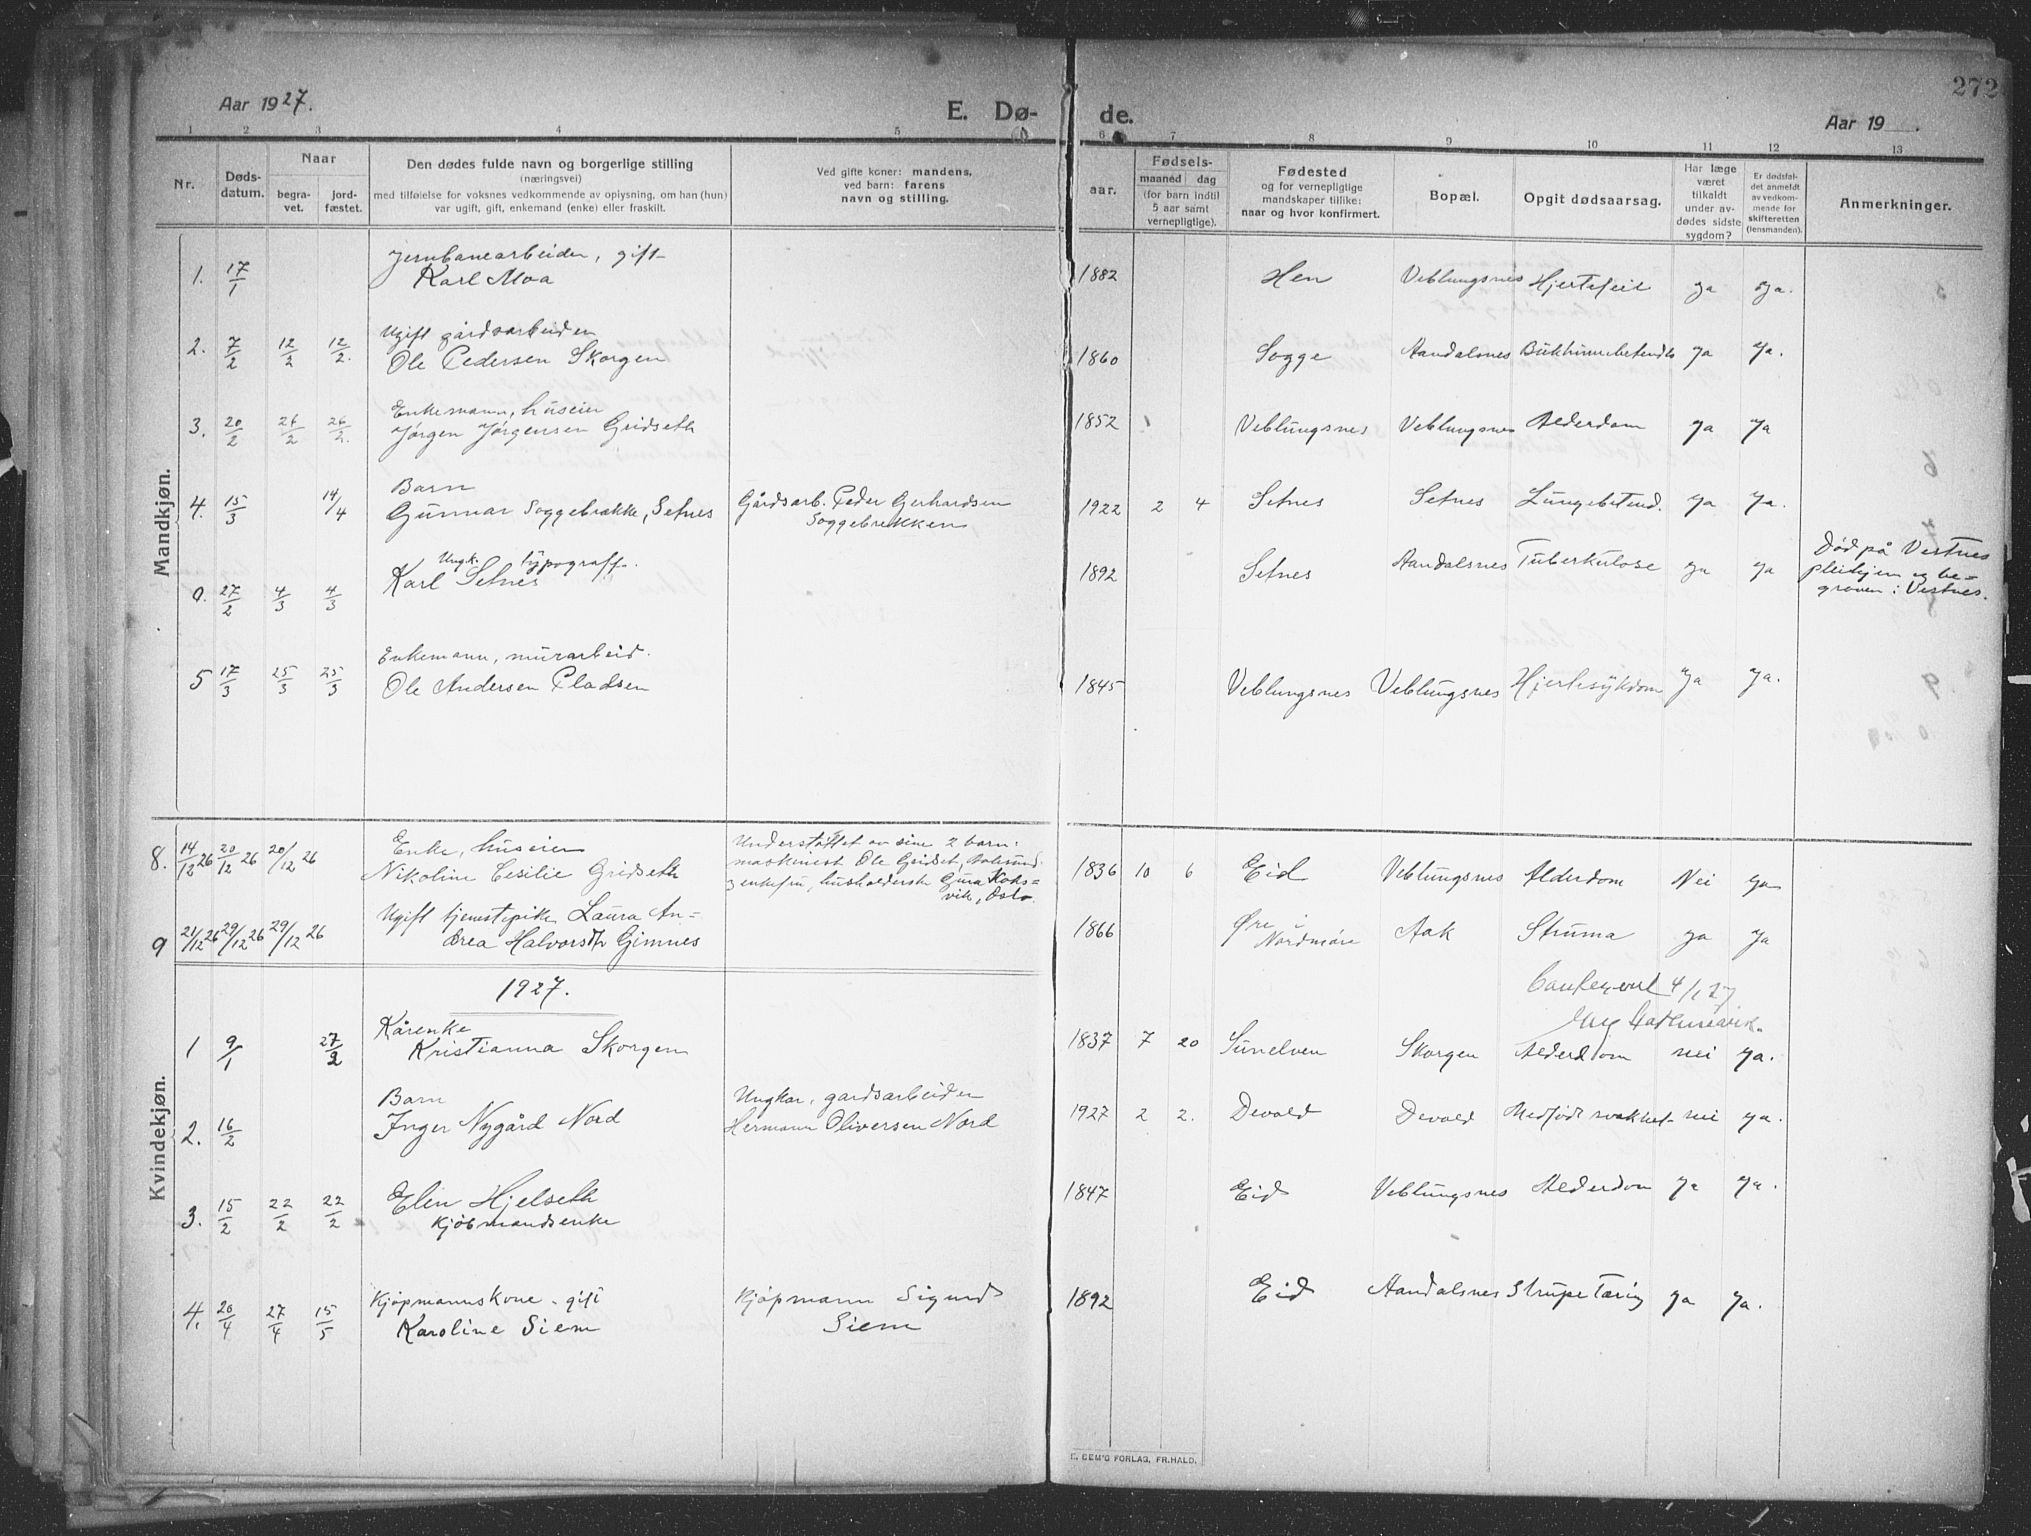 272
Aar 1927.
E. Dø-
de.
Aar 19
1 2 3 4 5 6 7 8 9 10 11 12 13
Nr.
Døds-
datum.
Naar
begra-
vet.
jord-
fæstet.
Den dødes fulde navn og borgerlige stilling
(næringsvei)
med tilføielse for voksnes vedkommende av oplysning, om han (hun)
var ugift, gift, enkemand (enke) eller fraskilt.
Ved gifte koner: mandens,
ved barn: farens
navn og stilling.
aar.
Fødsels-
maaned dag
(for barn indtil
5 aar samt
vernepligtige).
Fødested
og for vernepligtige
mandskaper tillike:
naar og hvor konfirmert.
Bopæl.
Opgit dødsaarsag.
Har læge
været
tilkaldt
under av-
dødes sidste
sygdom?
Er dødsfal-
det anmeldt
av vedkom-
mende for
skifteretten
(lensmanden).
Anmerkninger.
Mandkjøn.
Jernbanearbeider, gift
1. 17/1 Karl Moa 1882 Hen Veblungsnes Hjertefeil ja ja.
Ugift gårdsarbeider
2. 7/2 12/2 12/2. Ole Pedersen Skorgen 1860 Sogge Aandalsnes Bukhinnebetendels ja ja.
Enkemann, huseier
3. 20/2 26/2 26/2. Jørgen Jørgensen Gridseth 1852 Veblungsnes Veblungsnes Alderdom ja ja
Barn
4. 15/3 14/4 Gunnar Soggebrække, Setnes Gårdsarb. Peder Gerhardsen
Soggebrekken 1922 2 4 Setnes Setnes Lungebetend. ja ja.
Ungk. typograff.
0. 27/2 4/3 4/3 Karl Setnes 1892 Setnes Aandalsnes Tuberkulose ja ja
Død på Vestnes
pleihjem og be-
graven i Vestnes.
Enkemann, murarbeid.
5 17/3 25/3 25/3 Ole Andersen Pladsen 1845 Veblungsnes Veblungsnes Hjertesykdom ja ja.
Kvindekjøn.
8. 14/12 26 20/12 26 20/12 26 Enke, huseier
Nikoline Cesilie Gridseth
Understøttet av sine 2 barn:
maskinest Ole Gridset, Aalesund
enkefru, husholderske Gura Koks-
vik, Oslo.
1836 10 6 Eid Veblungsnes Alderdom Nei ja
9 21/12 26 29/12 26 29/12 26 Ugift tjenestepike Laura An-
drea Halvorsdtr Gimnes 1866 Øre i
Nordmøre Aak Struma ja ja
1927.
4/1 27
Kårenke
1 9/1 27/2 Kristianna Skorgen 1837 7 20 Sunelven Skorgen Alderdom nei ja.
Barn
2. 16/2 Inger Nygård Nord
Ungkar, gardsarbeider
Hermann Oliversen Nord 1927 2 2. Devold Devold Medfødt svakhet nei ja.
3. 15/2 22/2 22/2 Elen Hjelseth
Kjøbmandsenke 1847 Eid Veblungsnes Alderdom ja ja.
Kjøpmannskone, gift
4. 20/4 27/4 15/5 Karoline Siem
Kjøpmann Sigurd
Siem 1892 Eid Aandalsnes Strupetæring ja ja.
E. SEM'S FORLAG, FR.HALD.